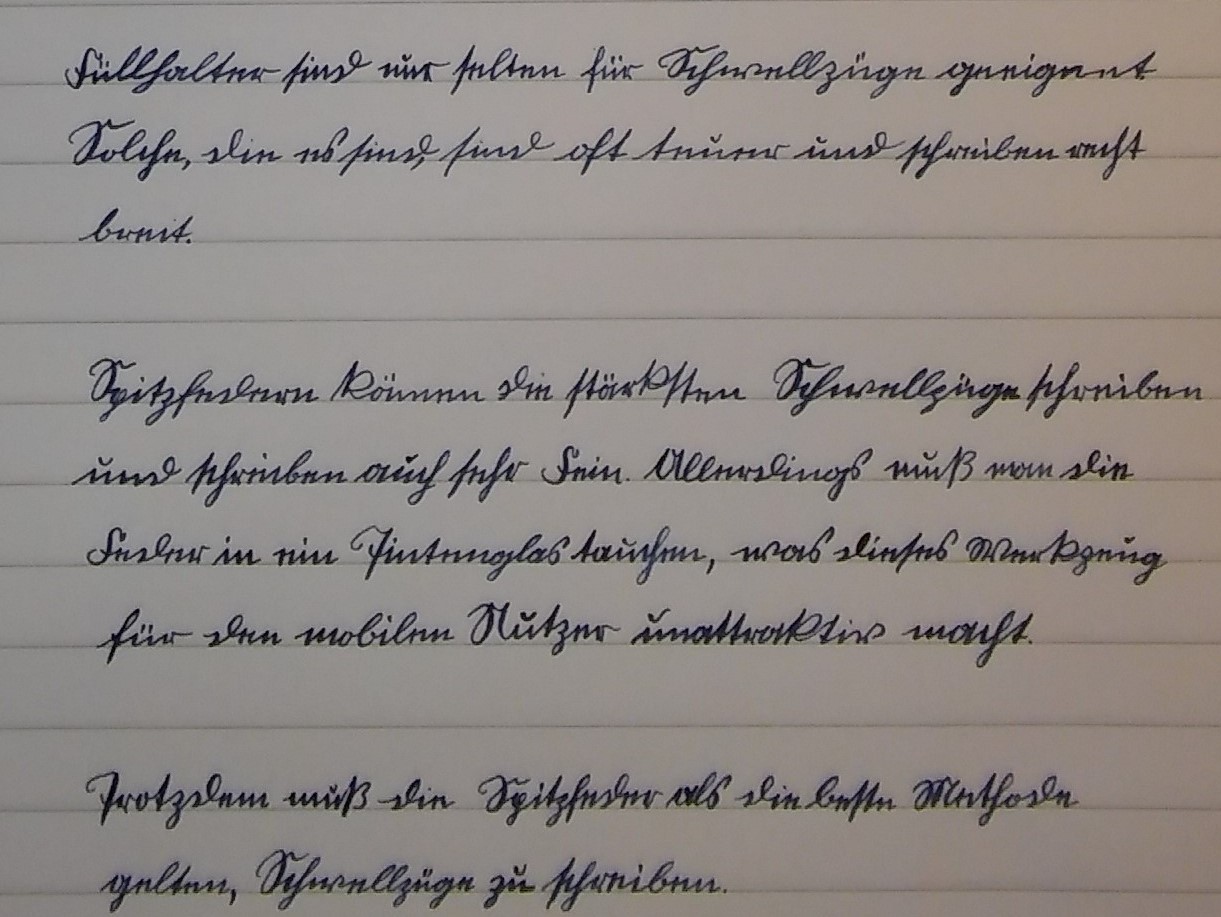 Füllhalter sind nur selten für Schwellzüge geeignet
Solche, die es sind, sind oft teuer und schreiben recht
breit.
Spitzfedern können die stärksten Schwellzüge schreiben
und schreiben auch sehr fein. Allerdings muß man die
Feder in ein Tintenglas tauchen, was dieses Werkzeug
für den mobilen Nutzer unattraktiv macht.
Trotzdem muß die Spitzfeder als die beste Methode
gelten, Schwellzüge zu schreiben.